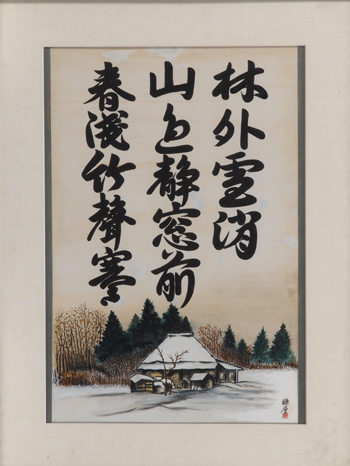 林外雪消
山色静窓前
春淺竹聲寒